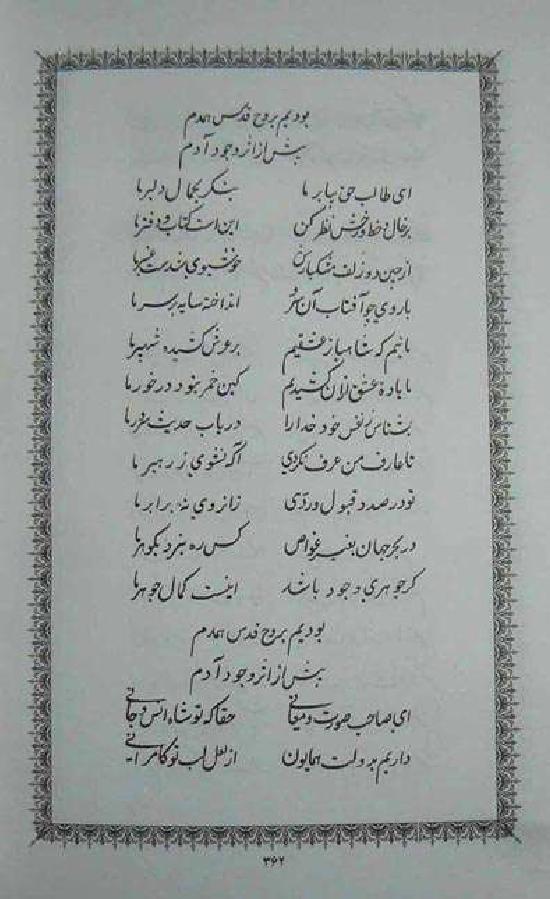 بودیم بروح قدس همدم
پیش از اثر وجود آدم
ای طالب حق بیا بر ما بنگر بجمال دلبر ما
بر خال و خط و رخش نظر کن این است کتاب و دفتر ما
از چین دو زلف مشکبارش خوشبوی شدست عنبر ما
با روی چو آفتاب آن انداخته سایه بر سر ما
مائیم که شاهباز عشقیم بر عرش کشیده شهپر ما
ما بادهٔ عشق از آن کشیدیم کین خمر بود در خور ما
بشناس بنفس خود خدا را دریاب حدیث مغز ما
تا عارف من عرف نگردی آگه نشوی ز رهبر ما
تو در صدد قبول و ردی زانروی نهٔ برابر ما
در بحر جهان بغیر غواص کس ره نبرد بگوهر ما
گر جوهری وجود باشد اینست کمال جوهر ما
بودیم بروح قدس همدم
پیش از اثر وجود آدم
ای صاحب صورت و معانی حقا که تو شاه انس و جانی
داریم بدولت همایون از لعل لب تو کامرانی
۳۶۲